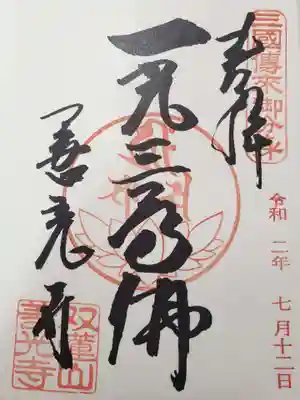 三國傳来御分身
奉拝
令和 二年 七月十二日
一光三尊佛
善光寺
善光寺